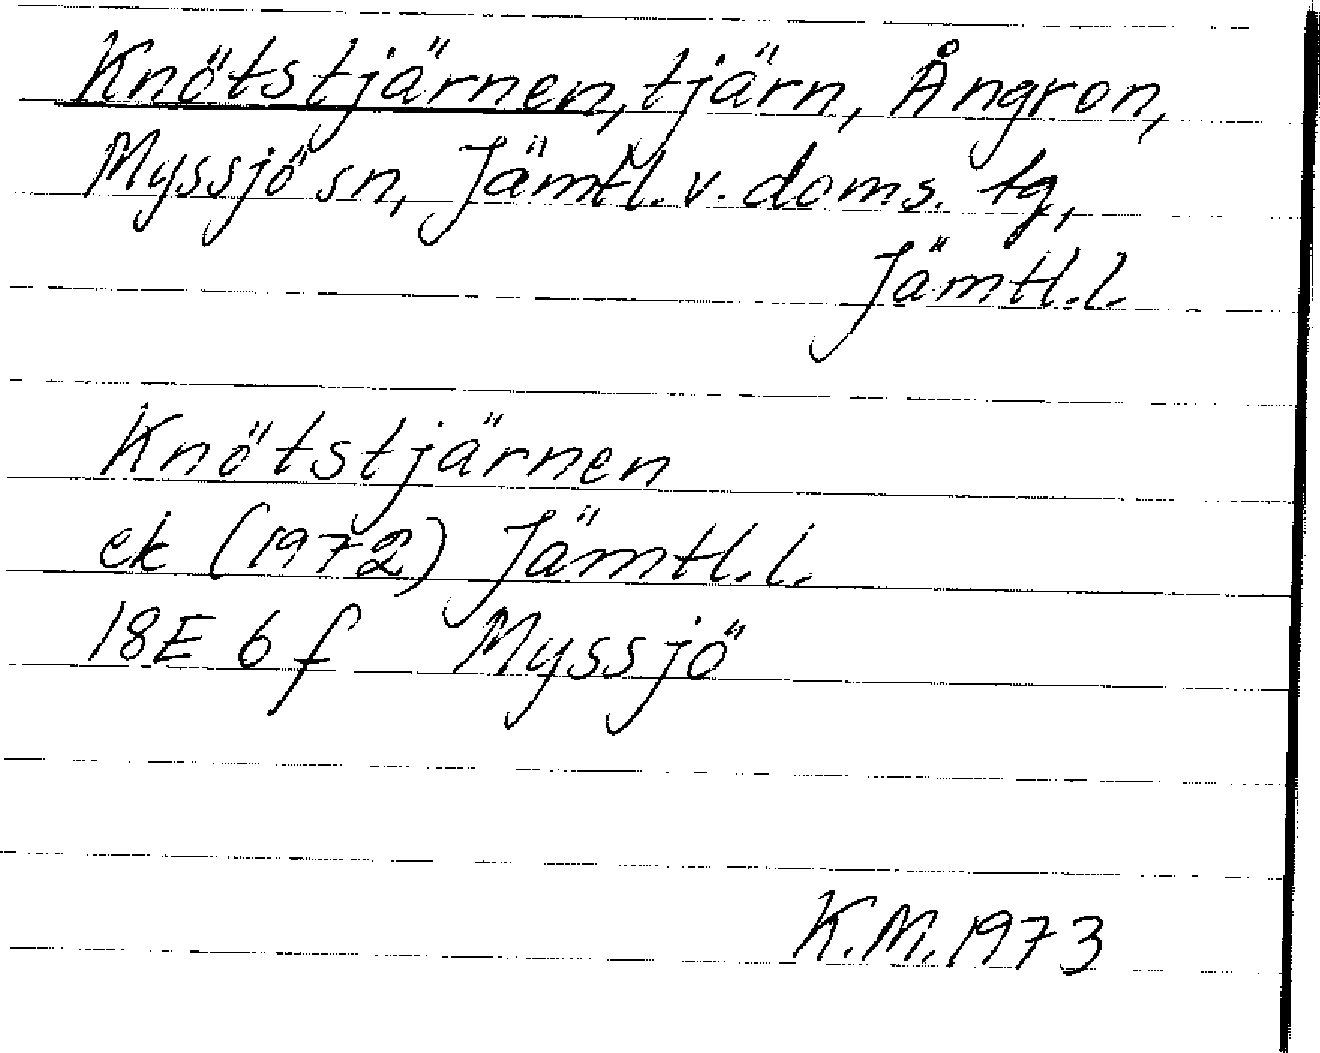 Knötstjärnen, tjärn, Ångron,
Myssjö sn, Jämtl. v. doms. tg,
Jämtl.l.
Knötstjärnen
ek (1972) Jämtl.l.
18E 6f Myssjö
K.M.1973